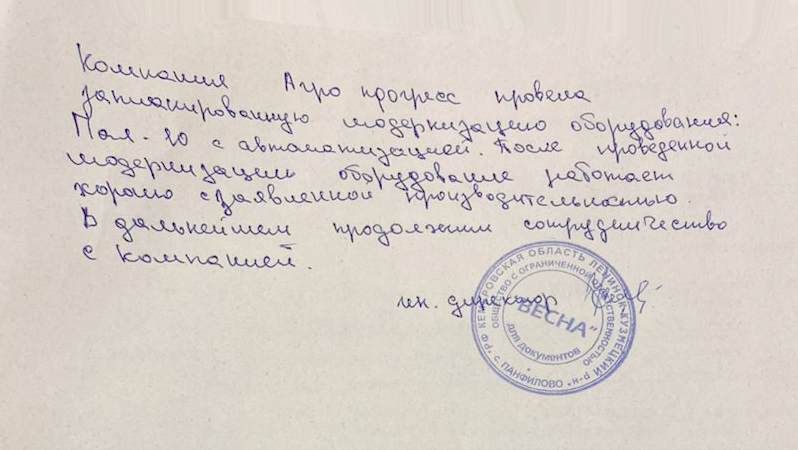 Компания Агро прогресс провела
запланированную модернизацию оборудования:
Пал-10 с автоматизацией. После проведенной
модернизации оборудование работает
хорошо с заявленной производительностью.
В дальнейшем продолжим сотрудничество
с компанией.
директор
РФ КЕМЕРОВСКАЯ ОБЛАСТЬ ЛЕНИНСК-КУЗНЕЦКИЙ Р-Н
с. ПАНФИЛОВО
ОБЩЕСТВО С ОГРАНИЧЕННОЙ ОТВЕТСТВЕННОСТЬЮ
"ВЕСНА"
для документов